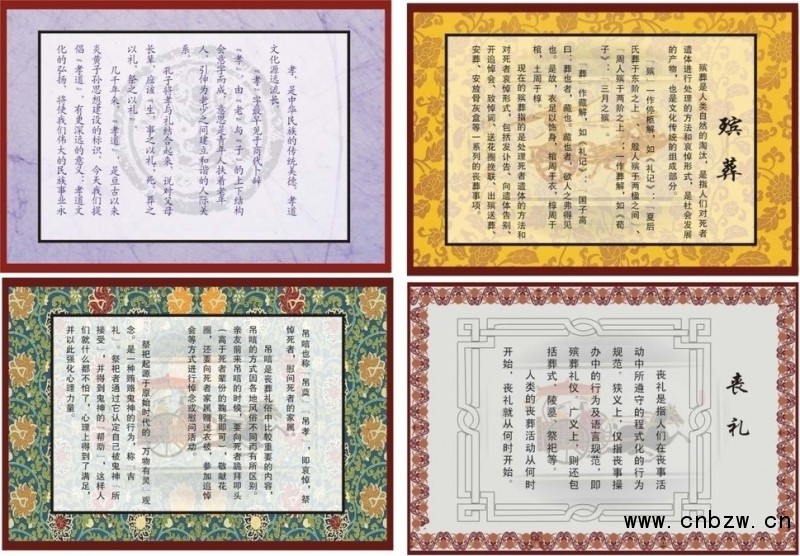 孝，是中华民族的传统美德。孝道
文化源远流长。
“孝”字最早见于商代卜辞
“孝”，由“老”与“子”的上下结构
会意字而成，意思是青年人扶着老年
人，引伸为老少之间建立和谐的人际关
孔子将孝与礼结合起来，说对父母
长辈，应该“生，事之以礼，死，葬之
以礼，祭之以礼”。
几千年来，“孝道”，是亘古以来
炎黄子孙思想建设的标识，今天我们提
倡“孝道”，有更深远的意义：孝道文
化的弘扬，将使我们伟大的民族事业永
殡葬
殡葬是人类自然的淘汰，是指人们对死者
遗体进行处理的方法和哀悼形式，是社会发展
的产物，也是文化传统的组成部分。
“殡”一作停柩解，如《礼记》：“夏后
氏葬于东阶之上”、“殷人殡于两楹之间”、
“周人殡于两阶之上”；一作葬解，如《荀
子》：“三月之殡。”
“葬”作藏解，如《礼记》：“国子高
曰：葬也者，藏也。藏也者，欲人之弗得见
也。是故，衣足以饰身，棺周于衣，椁周于
棺，土周于椁”
现在的殡葬指的是处理死者遗体的方法和
对死者哀悼形式，包括发讣告、向遗体告别、
开追悼会、致悼词、送花圈挽联、出殡送葬、
安葬、安放骨灰盒等一系列的丧葬事项。
吊唁也称“吊奠”、“吊孝”，即哀悼，祭
悼死者，慰问死者的家属。
吊唁是丧葬礼俗中比较重要的内容，
吊唁的方式因各地风俗不同而有所区别。
亲友前来吊唁的时候，要向死者跪拜叩头
（高于死者辈份的鞠躬即可），敬献花
圈，还要向死者家属赠送衣被，参加追悼
会等方式进行悼念或慰问活动
祭祀起源于原始时代的“万物有灵”观
念。是一种贿赂鬼神的行为，称“吉
礼”。祭祀者通过它认定自己被鬼神“所
接受”，并得到鬼神的“帮助”，这样人
们就什么都不怕了，心理上得到了满足，
并以此强化心理力量。
丧礼
丧礼是指人们在丧事活
动中所遵守的程式化的行为
规范。狭义上，仅指丧事操
办中的行为及语言规范，即
殡葬礼仪，广义上，则还包
括葬式，陵墓，祭祀等。
人类的丧葬活动从何时
开始，丧礼就从何时开始。
www.cnbzw.cn